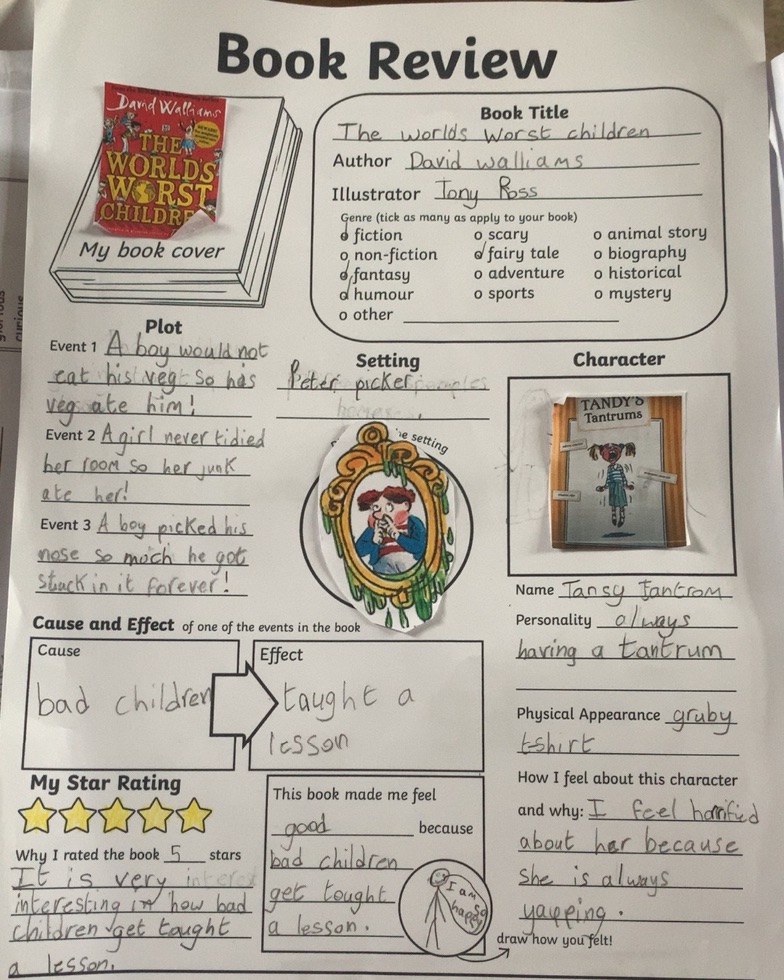 Book Review
David Walliams
THE
WORLD'S
WORST
CHILDRE
My book cover
Book Title
The worlds worst children
Author David walliams
Illustrator Tony Ross
Genre (tick as many as apply to your book)
o fiction o scary o animal story
o non-fiction o fairy tale o biography
o fantasy o adventure o historical
o humour o sports o mystery
o other
Plot
Event 1 A boy would not
eat his veg so his
veg ate him!
Event 2 A girl never tidied
her room so her junk
ate her!
Event 3 A boy picked his
nose so moch he got
stuck in it forever!
Setting
Peter picker
homes
e setting
Character
TANDY'S
Tantrums
Name Tansy tantrom
Personality always
having a tantrum
Physical Appearance gruby
t-shirt
How I feel about this character
and why: I feel horrified
about har because
she is always
yapping.
Cause and Effect of one of the events in the book
Cause
bad children
Effect
taught a
lesson
My Star Rating
Why I rated the book 5 stars
It is very interest
interesting in how bad
children get tought
a lesson.
This book made me feel
good because
bad children
get tought
a lesson.
I am
so
happy
draw how you felt!